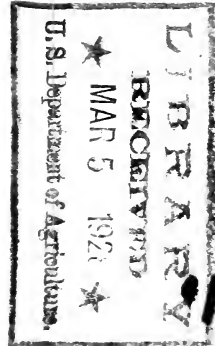 LIBRARY
RECEIVED
★ MAR 5 192 ★
U.S. Department of Agriculture.